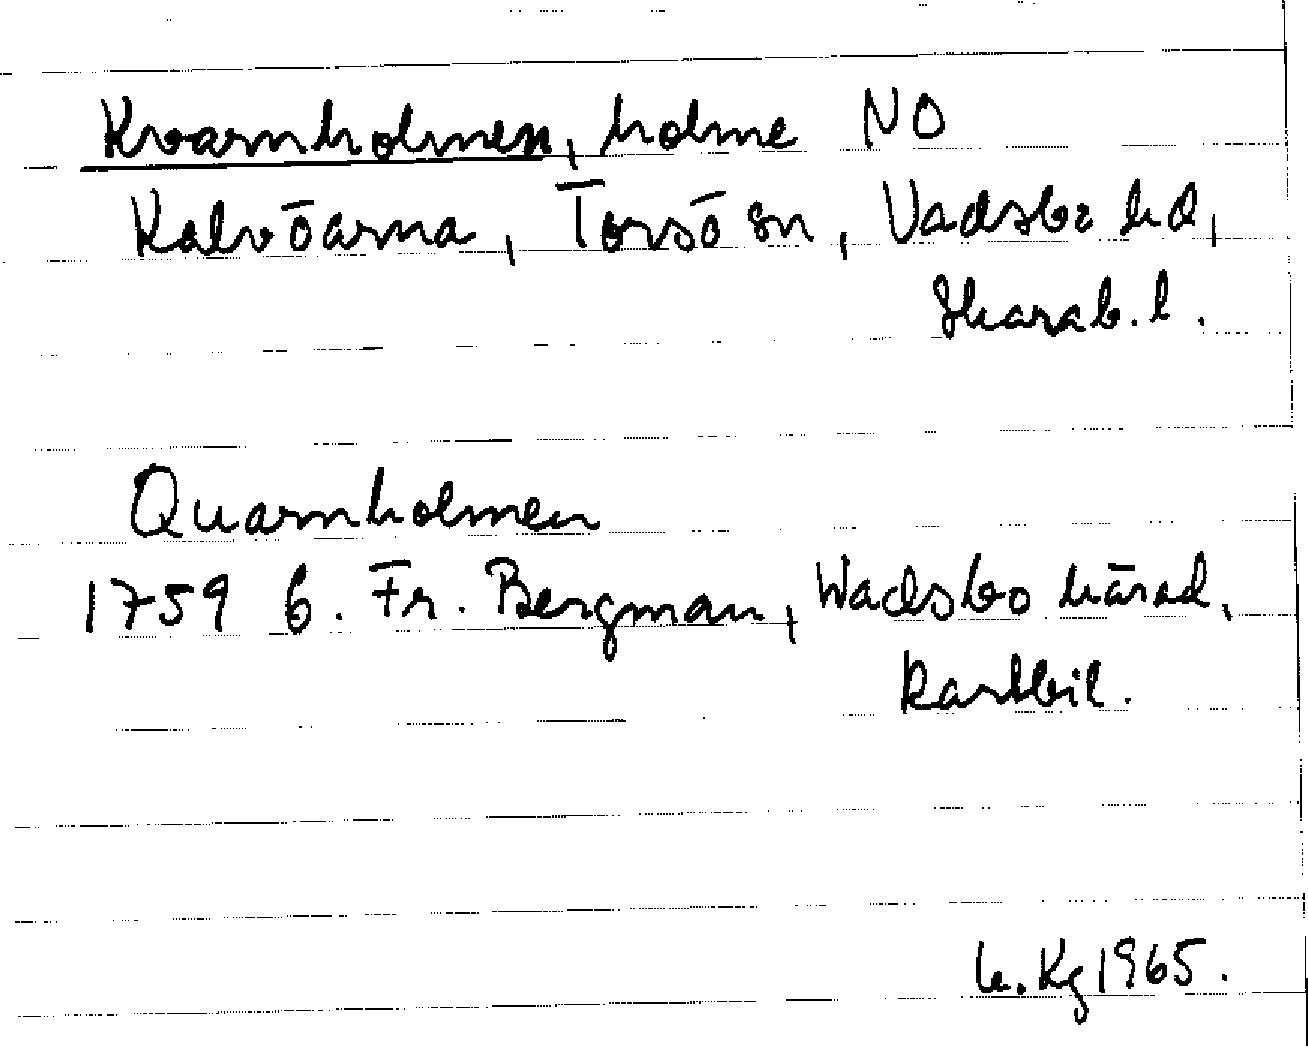 Kvarnholmen, holme NO
Kalvöarna, Torsö sn, Vadsbo hd,
Skarab. l.
Quarnholmen
1759 G. Fr. Bergman, Wadsbo härad,
kartbil.
Kg 1965.